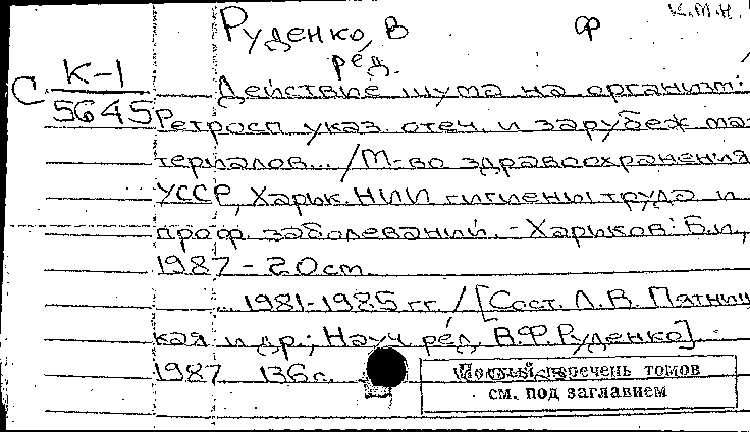 К.М.Н.
Руденко, В Ф
ред.
С К-1
5645
Действие шума на организм:
Ретросп. указ. отеч. и зарубеж. ма-
териалов... / М-во здравоохранения
УССР, Харьк. НИИ гигиены труда и
проф. заболеваний. - Харьков: Б.и.,
1987 - 20 см.
... 1981-1985 гг. / [Сост. Л.В. Пятниц
кая и др.; Науч. ред. В.Ф. Руденко].
1987. 136 с.
перечень томов
см. под заглавием